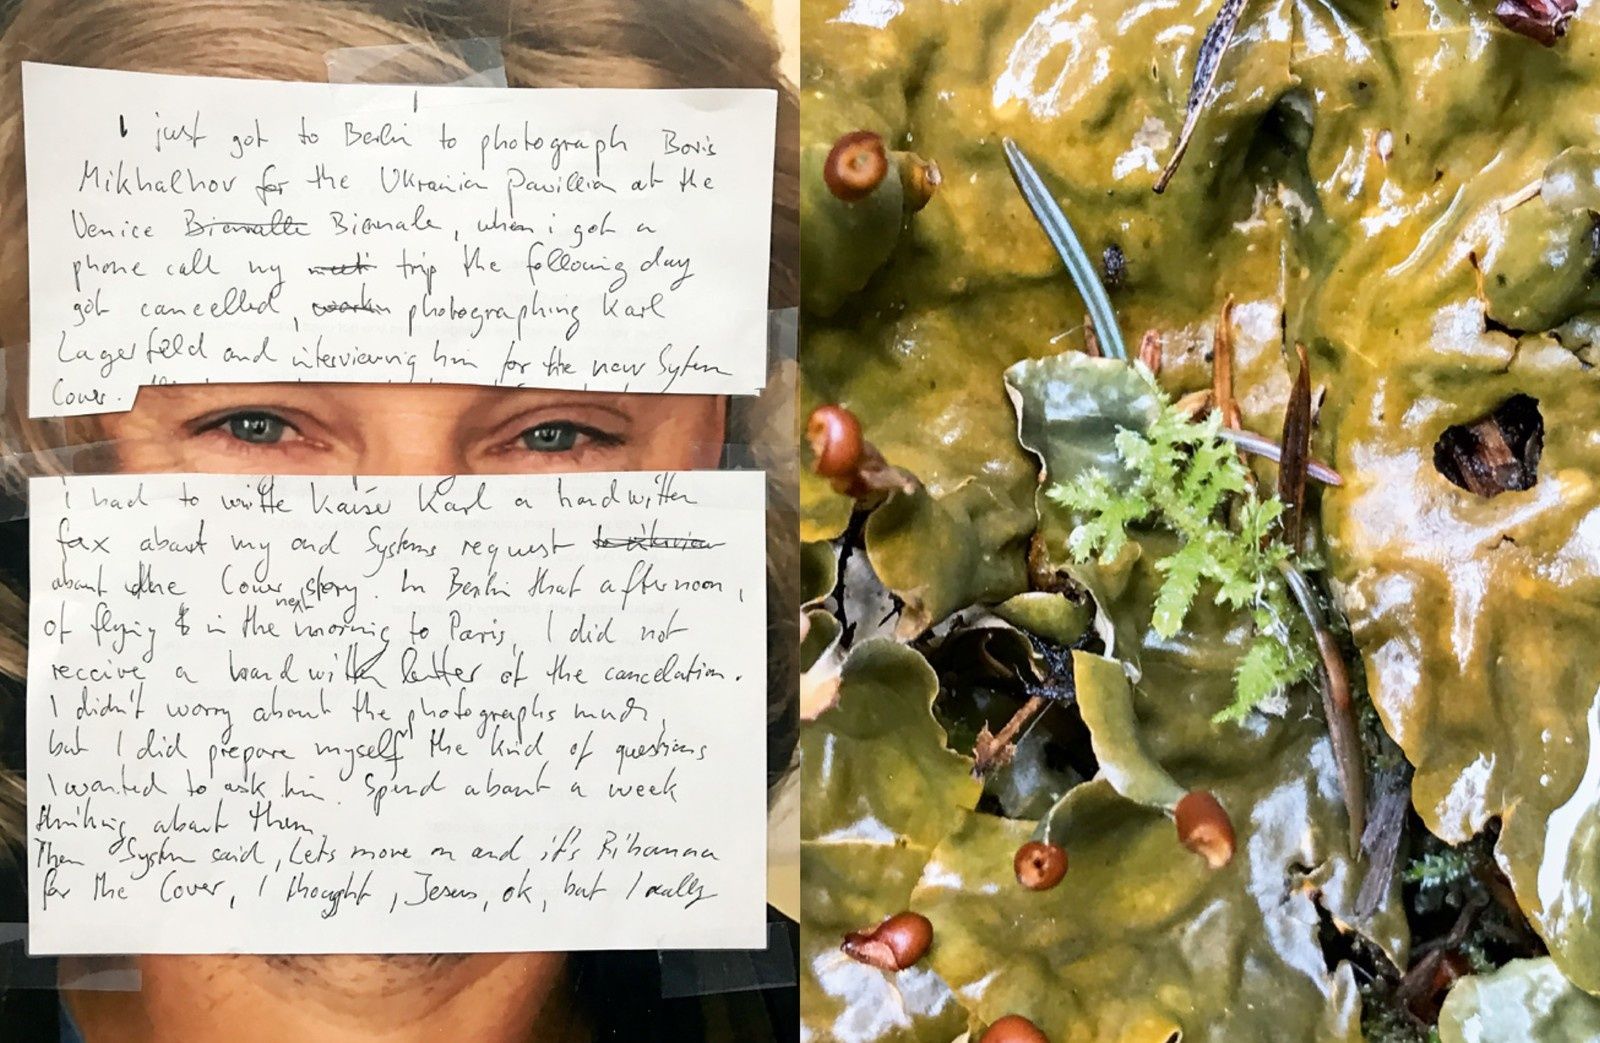 I just got to Berlin to photograph Boris
Mikhalhov for the Ukrainian Pavillion at the
Venice Biennalle Biennale, when i got a
phone call my trip the following day
got cancelled, photographing Karl
Lagerfeld and interviewing him for the new System
Cover.
I had to write Kaiser Karl a handwritten
fax about my and Systems request
about the Cover story. In Berlin that afternoon,
of flying in the next morning to Paris, I did not
receive a handwritten letter of the cancelation.
I didn't worry about the photographs much,
but I did prepare myself the kind of questions
I wanted to ask him. Spend about a week
thinking about them.
Then System said, Lets move on and it's Rihanna
for the Cover, I thought, Jesus, ok, but I really